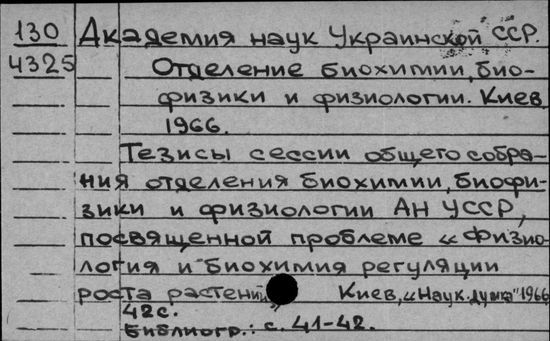 130 Академия наук Украинской ССР.
4325 Отделение биохимии, био-
физики и физиологии. Киев
1966.
Тезисы сессии общего собра-
ния отделения биохимии, биофи-
зики и физиологии АН УССР,
посвященной проблеме "Физио-
логия и биохимия регуляции
роста растений" Киев, "Наук. думка" 1966
42с.
Библиогр.: с. 41-42.